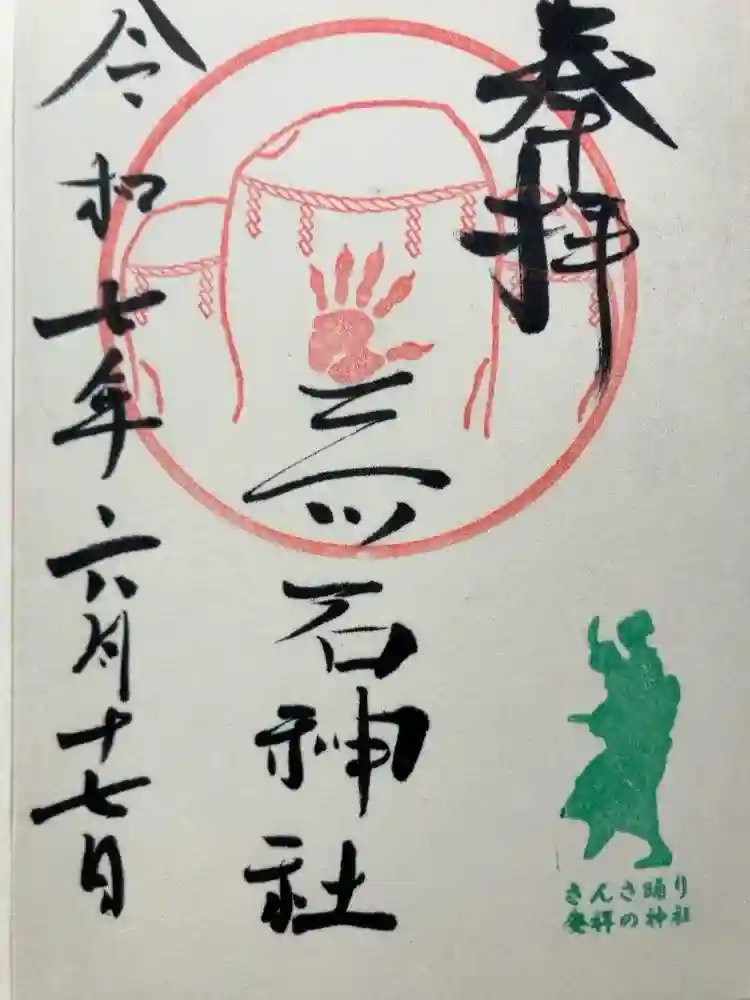 奉拝
三ツ石神社
令和七年六月十七日
さんさ踊り
発祥の神社